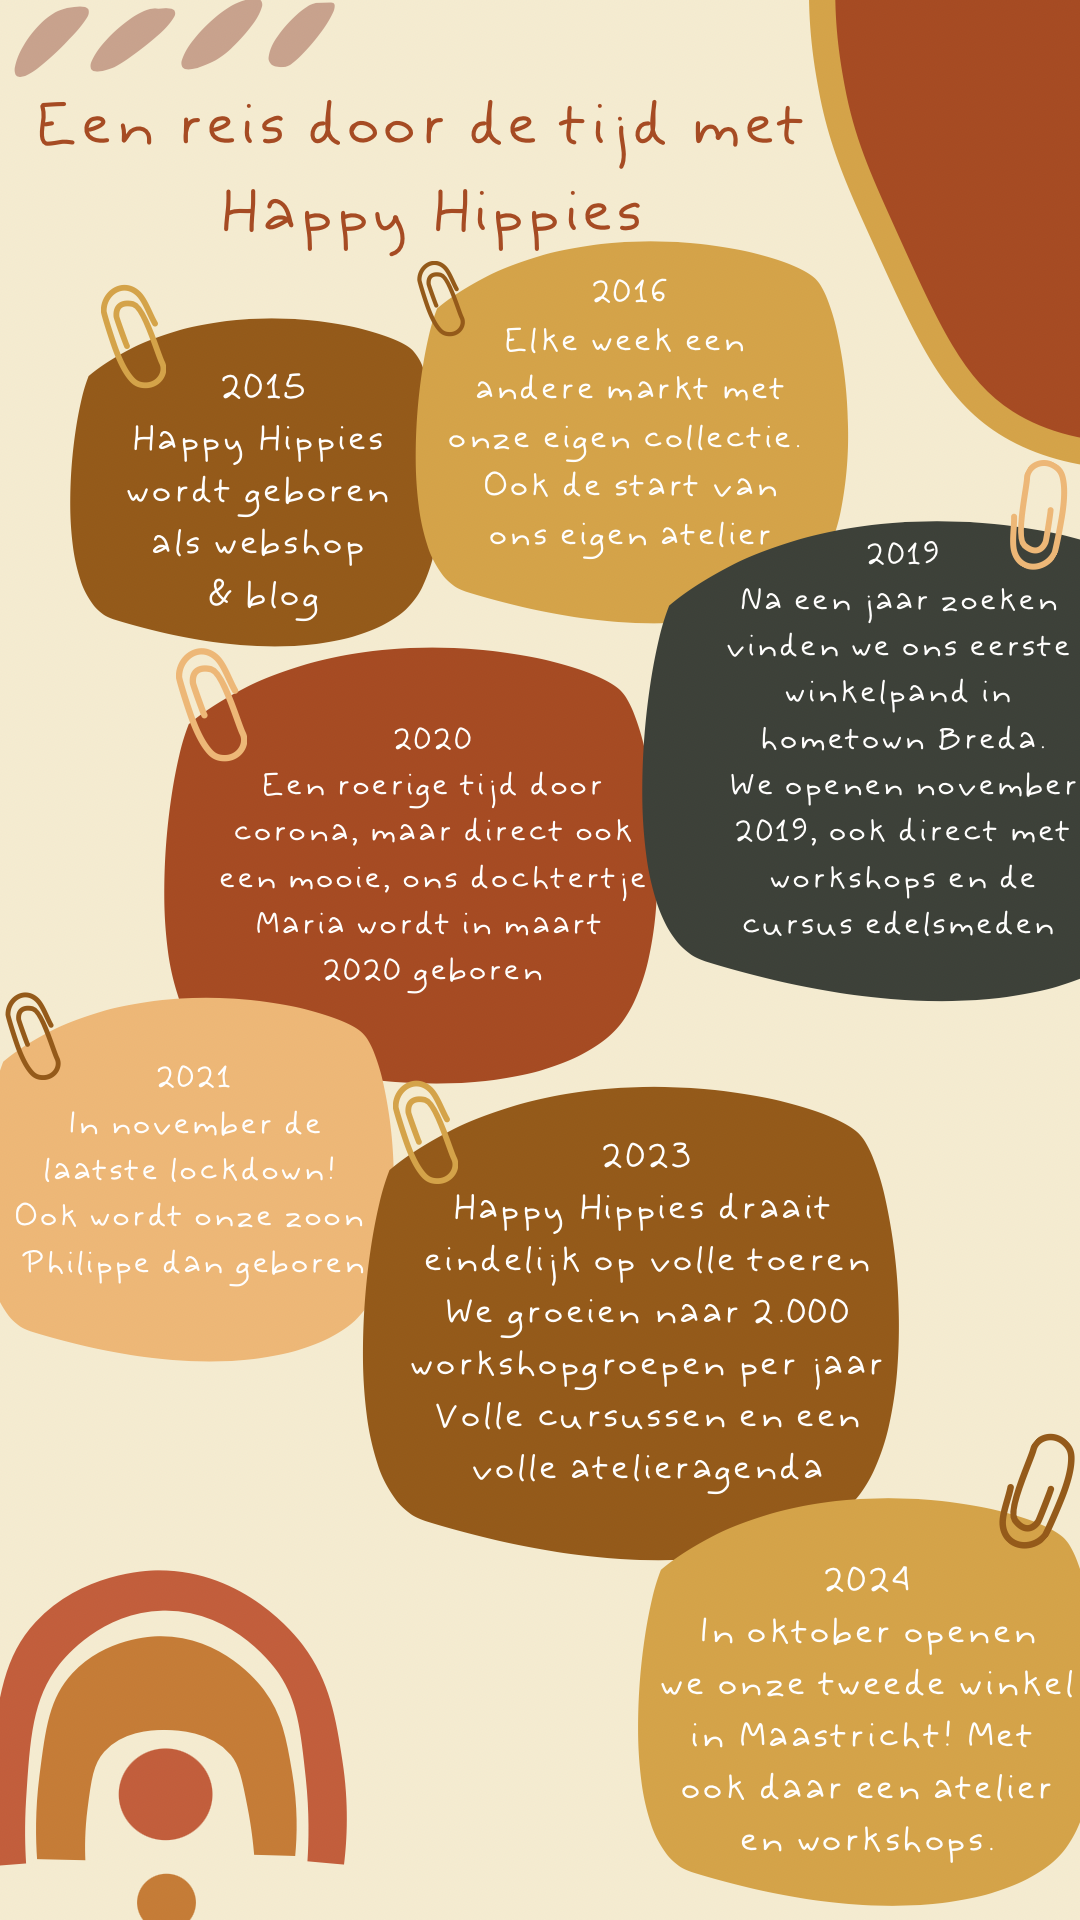 Een reis door de tijd met
Happy Hippies
2015
Happy Hippies
wordt geboren
als webshop
& blog
2016
Elke week een
andere markt met
onze eigen collectie.
Ook de start van
ons eigen atelier
2019
Na een jaar zoeken
vinden we ons eerste
winkelpand in
hometown Breda.
We openen november
2019, ook direct met
workshops en de
cursus edelsmeden
2020
Een roerige tijd door
corona, maar direct ook
een mooie, ons dochtertje
Maria wordt in maart
2020 geboren
2021
In november de
laatste lockdown!
Ook wordt onze zoon
Philippe dan geboren
2023
Happy Hippies draait
eindelijk op volle toeren
We groeien naar 2.000
workshopgroepen per jaar
Volle cursussen en een
volle atelieragenda
2024
In oktober openen
we onze tweede winkel
in Maastricht! Met
ook daar een atelier
en workshops.